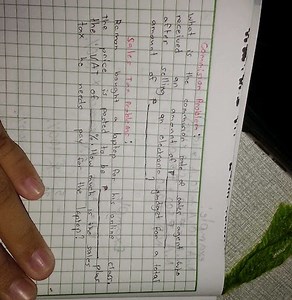 Commission Problem:
What is the commission rate of sales agent who
received an amount of ₱
after selling an electronic gadget for a total
amount of ₱
Sales Tax Problem:
Ramon bought a laptop for his online class.
the price is posted to be ₱ plus
the VAT of %. How much is the sales
tax he needs pay for the laptop?